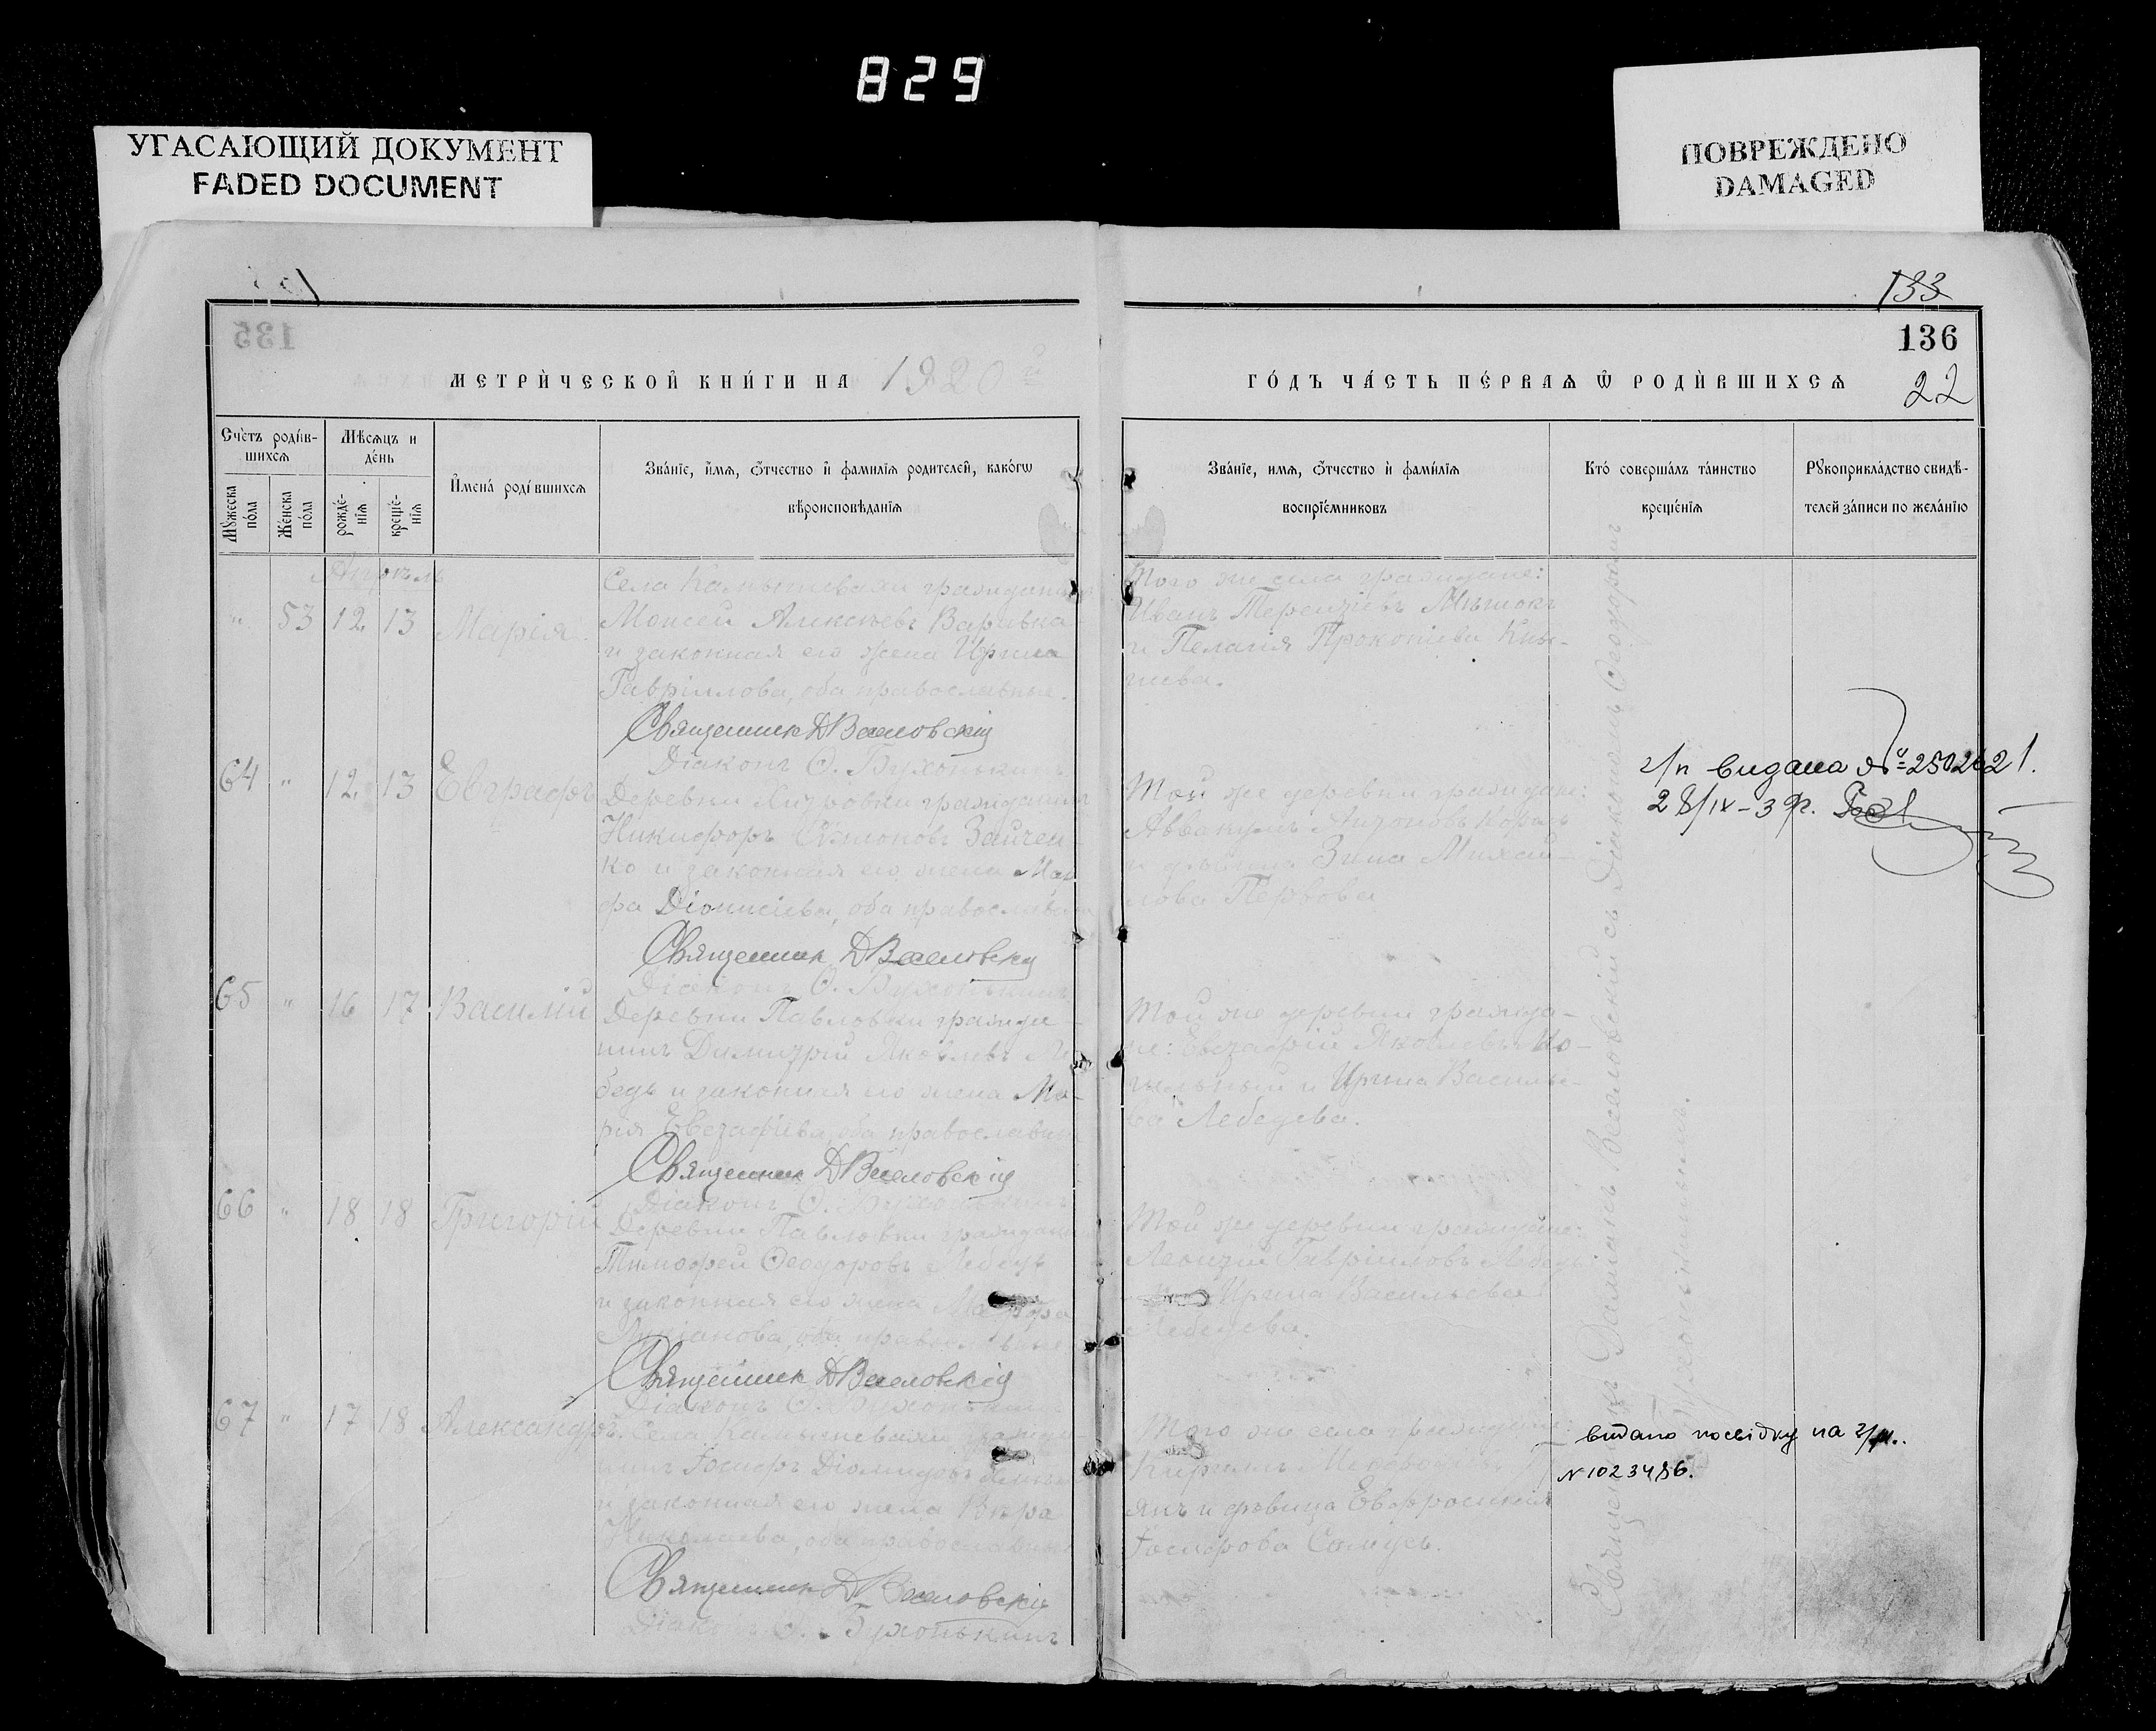 829
УГАСАЮЩИЙ ДОКУМЕНТ
FADED DOCUMENT
ПОВРЕЖДЕНО
DAMAGED
133
135
136
22
МЕТРИ́ЧЕСКОЙ КНИ́ГИ НА 1920 й
ГО́ДЪ ЧА́СТЬ ПЕ́РВАѦ Ѿ РОДИ́ВШИХСѦ
Сче́тъ роди́в-
шихсѧ
Мꙋ́жеска по́ла
Же́нска по́ла
Мѣ́сѧцъ и
де́нь
рожде́-
нїѧ
креще́-
нїѧ
И҆мена́ роди́вшихсѧ
Зва́нїе, и҆́мѧ, ѻ҆́тчество и҆ фами́лїѧ роди́телей, како́гѡ
вѣроисповѣ́данїѧ
Зва́нїе, и́мѧ, ѻ҆́тчество и҆ фами́лїѧ
воспрїе́мниковъ
Кто́ соверша́лъ та́инство
креще́нїѧ
Рꙋкоприкла́дство свидѣ́-
телей за́писи по жела́нїю
Апрѣль
" 53 12. 13 Марія.
Села Камышевахи гражданинъ
Моисей Алексѣевъ Варавка
и законная его жена Ирина
Гавріилова, оба православные.
Священник Д Веселовскій
Діаконъ Ѳ. Бухонькинъ
Того же села граждане:
Иванъ Терентіевъ Мѣшокъ
и Пелагія Прокопіева Кны-
шева.
64 " 12. 13 Евграфъ
Деревни гражданинъ
Никифоръ Симоновъ Зайчен-
ко и законная его жена Мар
фа Діонисіева, оба православные
Священник Д Веселовскій
Діаконъ Ѳ. Бухонькинъ
Той же деревни граждане:
Аввакумъ Антоновъ Кораль
и дѣвица Зина Михай-
лова Первова
г/п видана № 2502621.
28/IX-39г.
65 " 16 17 Василій
Деревни Павловки гражда-
нинъ Димитрій Яковлевъ Ле-
бедь и законная его жена Ма-
рія Евстафіева, оба православные
Священник Д Веселовскій
Діаконъ Ѳ. Бухонькинъ
Той же деревни гражда-
не: Евстафій Яковлевъ Ко-
тельный и Ирина Василье-
ва Лебедева.
66 " 18 18 Григорій
Деревни Павловки гражданинъ
Тимофей Ѳеодоровъ Лебедь
и законная его жена Марфа
Лукіанова, оба православные
Священник Д Веселовскій
Діаконъ Ѳ. Бухонькинъ
Той же деревни граждане:
Леонтій Гавріиловъ Лебедь
и Ирина Васильева
Лебедева.
67 " 17 18 Александръ.
Села Камышевахи гражда-
нинъ Іосифъ Діомидовъ
и законная его жена Вѣра
Николаева, оба православные
Священник Д Веселовскій
Діаконъ Ѳ. Бухонькинъ
Того же села граждане:
Кириллъ
якъ и дѣвица Евфросинія
Іосифова Самусь.
видано посвідку на г/п..
№ 1023486.
Священникъ Даміанъ Веселовскій съ Діакономъ Ѳеодоромъ
Бухонькинымъ.